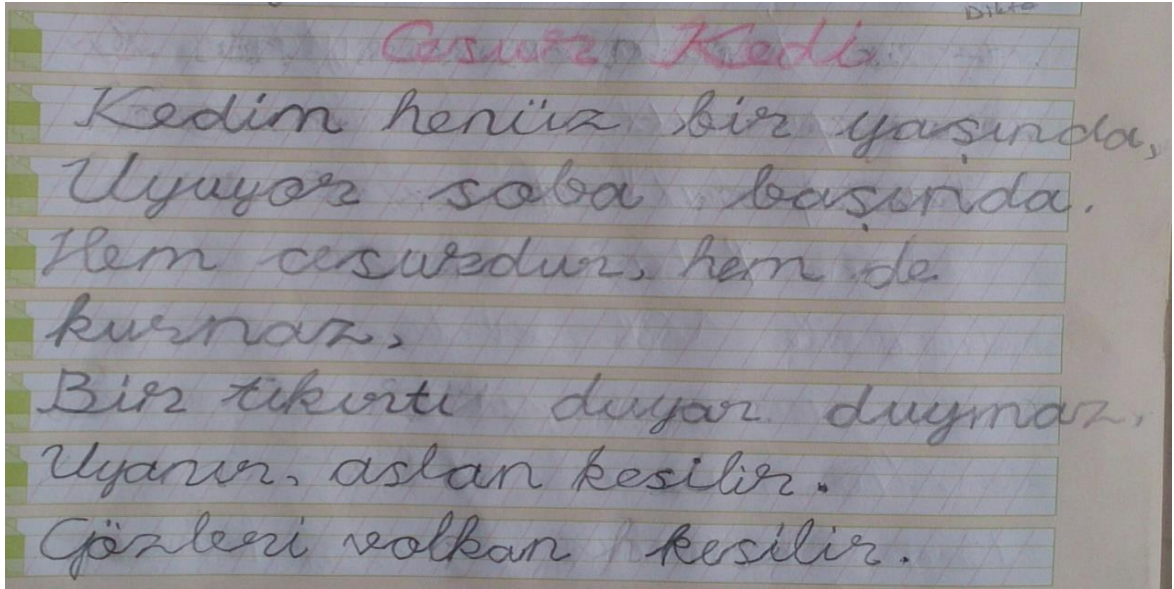 Dikte
Cesur Kedi
Kedim henüz bir yaşında,
Uyuyor soba başında.
Hem cesurdur, hem de
kurnaz,
Bir tıkırtı duyar duymaz,
Uyanır, aslan kesilir.
Gözleri volkan kesilir.